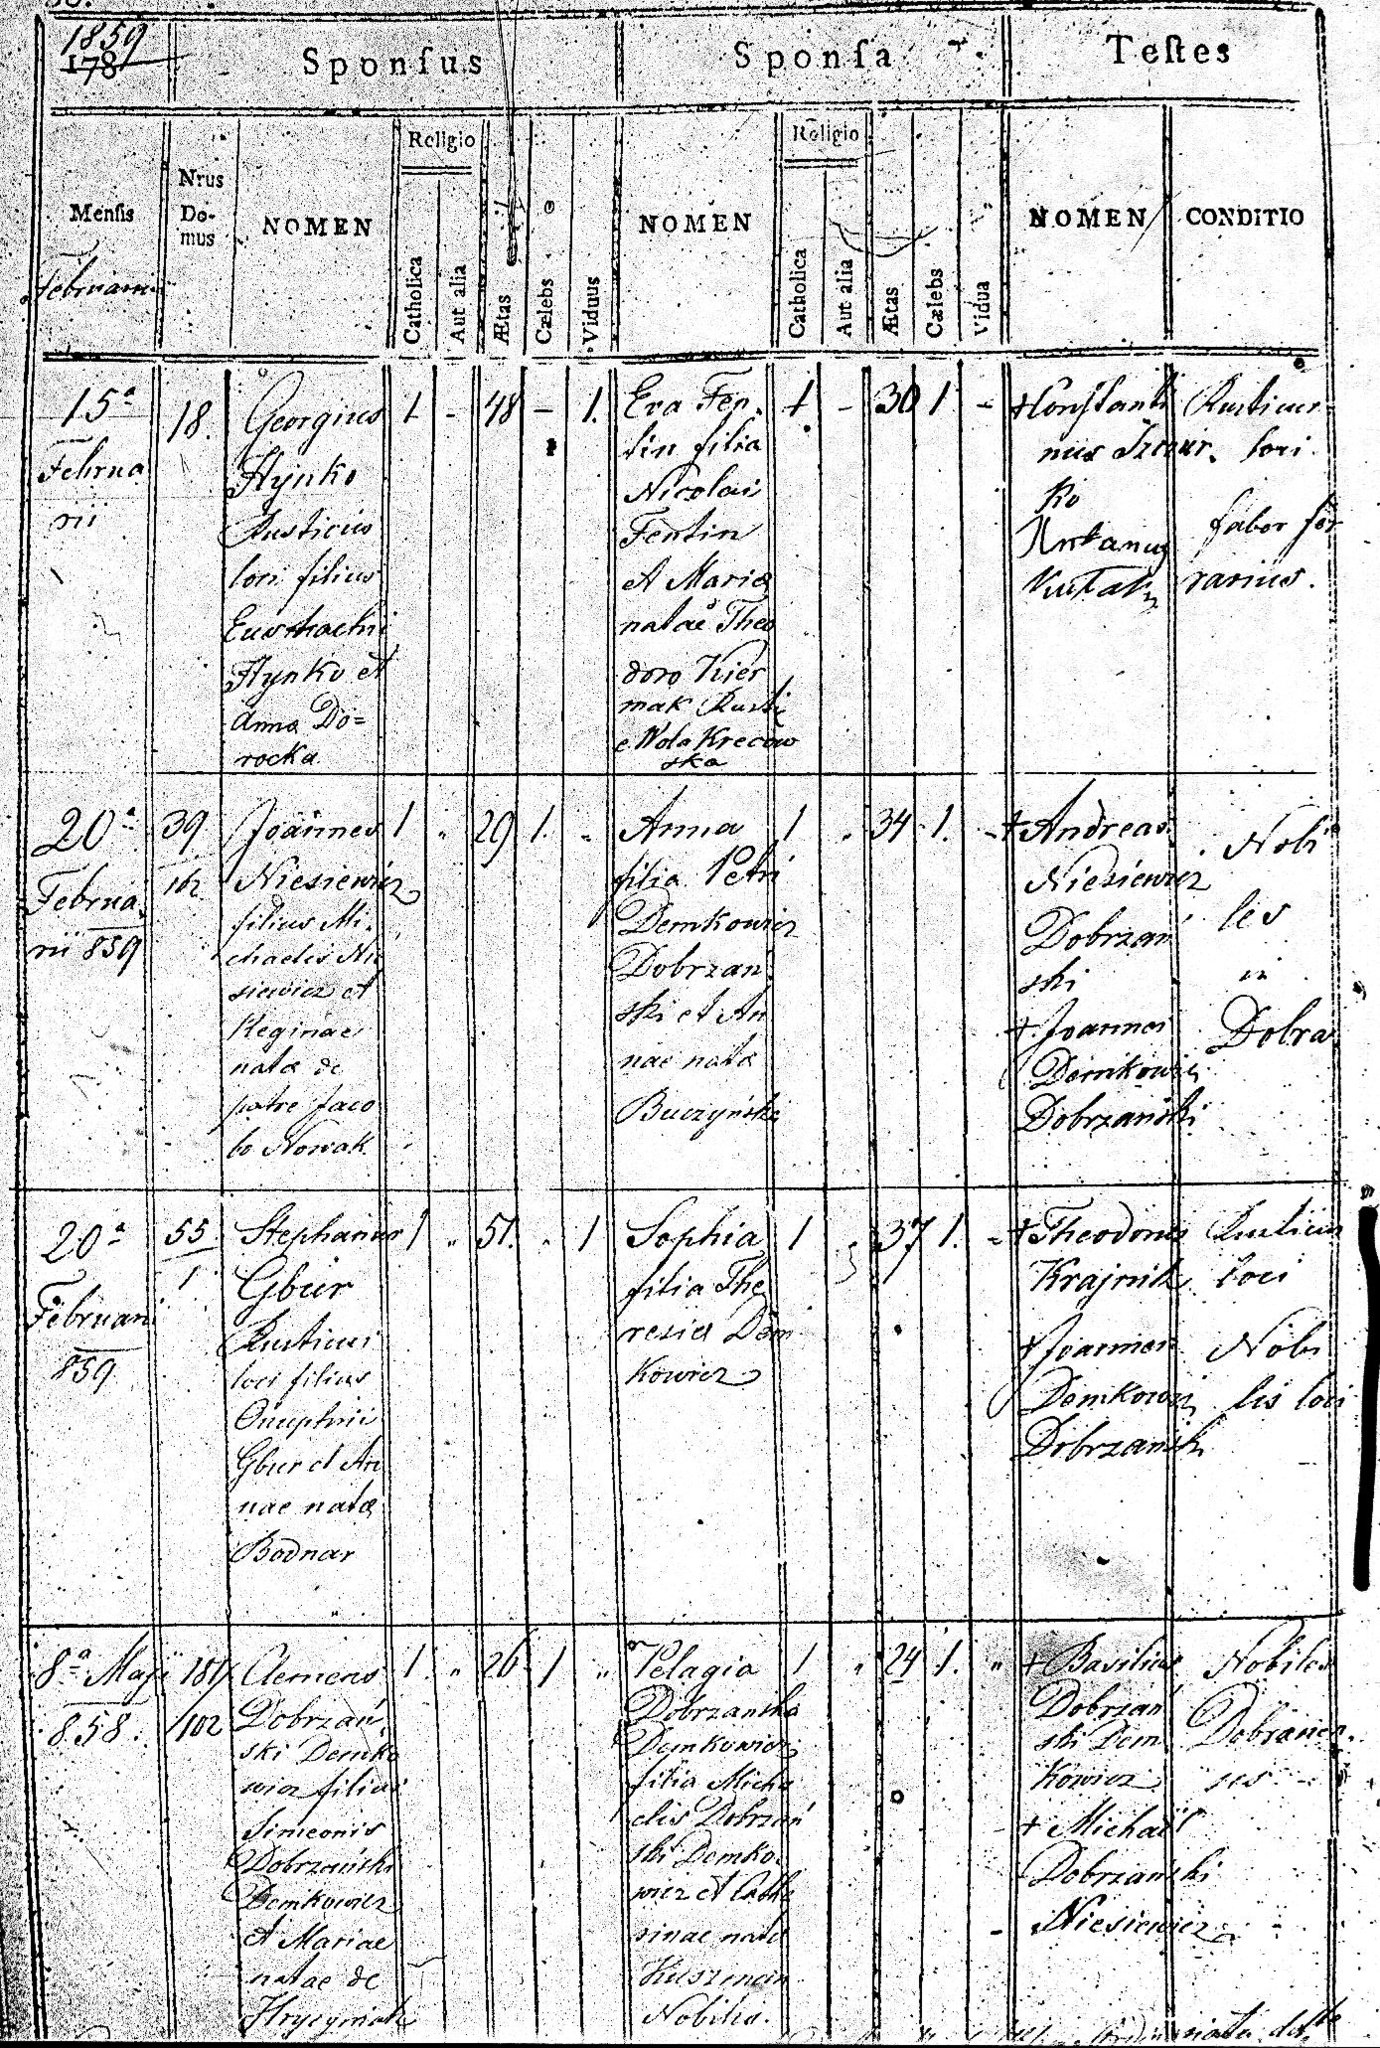 1859
178
Sponsus
Sponsa
Testes
Mensis
Nrus Domus
NOMEN
Religio
Catholica
Aut alia
Ætas
Cælebs
Viduus
NOMEN
Religio
Catholica
Aut alia
Ætas
Cælebs
Vidua
NOMEN
CONDITIO
15ª
Februa
rii
18.
Georgius
Hynko
Rusticus
loci filius
Eustachii
Hynko et
Anna Do=
rocka
1 - 48 - 1.
Eva Fen.
tin filia
Nicolai
Fentin
et Mariæ
natae Theo
doro Kier
mak Rusti
e Wola Krecow
ska
1 - 30 1 -
+Constanti
nus
ko
Rusticus
loci
faber fer
rarius.
20ª
Februa
rii 859
39
162
Joannes
Niesiewicz
filius Mi.
chaelis Nie
siewicz et
Reginae
natæ de
patre Jaco
bo Nowak
1 " 29 1. "
Anna
filia Petri
Demkowicz
Dobrzań
ski et An
nae natæ
Buczyńska
1 " 34 1. -
+Andreas
Niesiewicz
Dobrzań
ski
+Joannes
Demkowicz
Dobrzański
Nobi
les
in
Dobra
20ª
Februarii
859
55
1
Stephanus
Gbur
Rusticus
loci filius
Onuphrii
Gbur et An
nae natæ
Bodnar
1 " 51. " 1
Sophia
filia The
resiæ Dem
kowicz
1 37 1. -
+Theodorus
Krajnik
+Joannes
Demkowicz
Dobrzański
Rusticus
loci
Nobi
lis loci
8ª Maji
858.
102
Clemens
Dobrzań
ski Demko
wicz filius
Simeonis
Dobrzański
Demkowicz
et Mariae
natae de
Hrycyniak
1 " 26 1 "
Pelagia
Dobrzanska
Demkowicz
filia Micha
elis Dobrzań
ski Demko.
wicz et Cathe
rinae natæ
Nobilis.
1 " 24 1. "
+Basilius
Dobrzań
ski Dem
kowicz
+Michaël
Dobrzański
Niesiewicz
Nobiles
Dobranen
ses